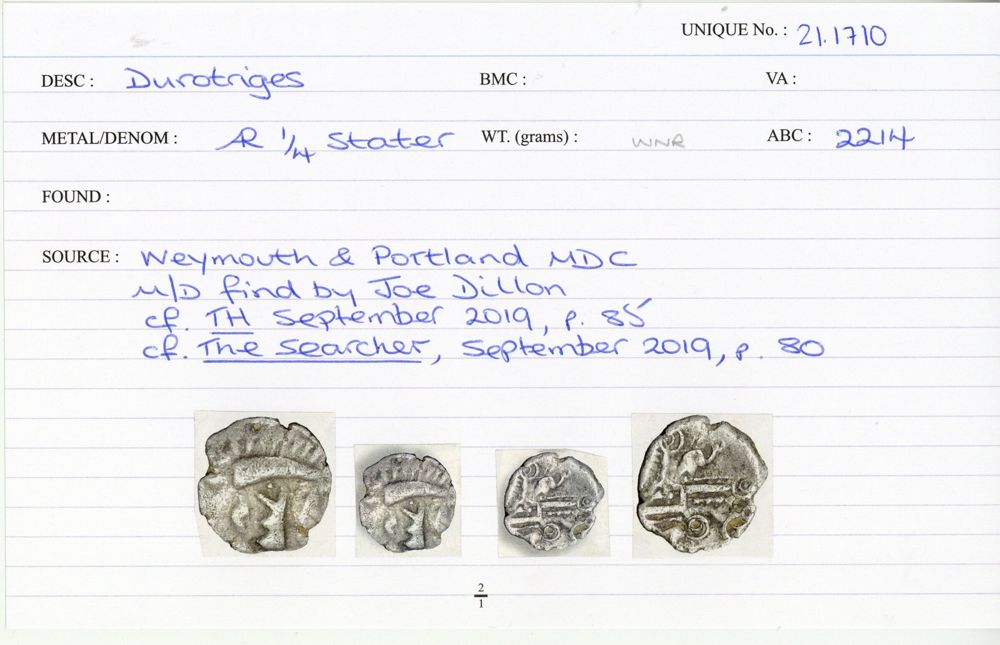 UNIQUE No. : 21.1710
DESC : Durotriges BMC : VA :
METAL/DENOM : AR 1/4 Stater WT. (grams) : WNR ABC : 2214
FOUND :
SOURCE : Weymouth & Portland MDC
M/D find by Joe Dillon
cf. TH September 2019, p. 85
cf. The Searcher, September 2019, p. 80
2
1